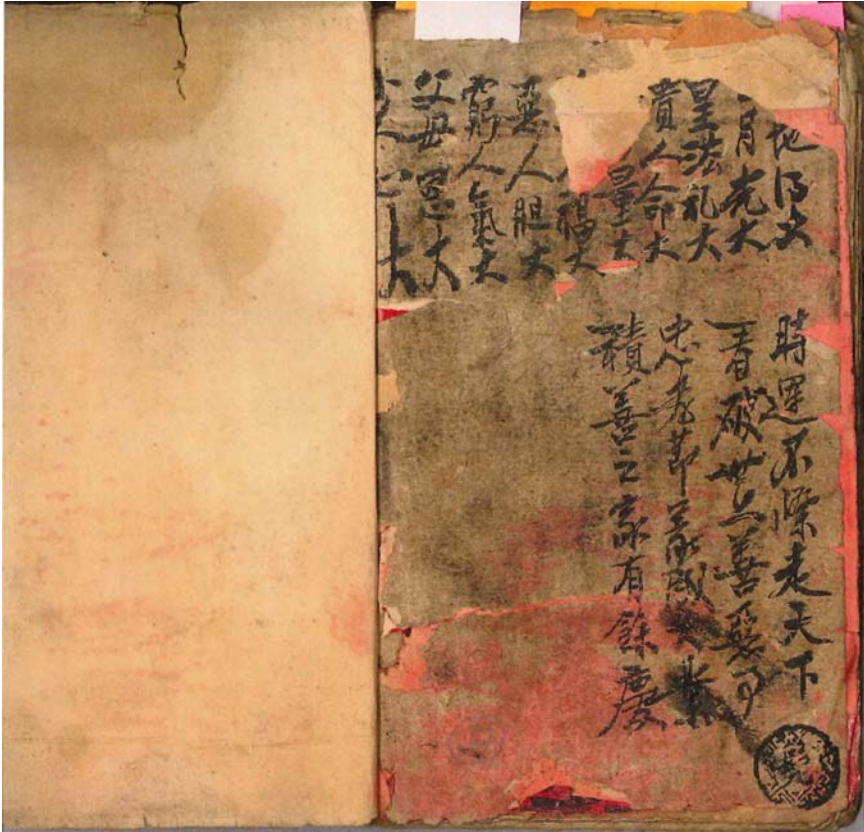 地得大
月光大
皇法礼大
貴人命大
量大
福大
惡人胆大
窮人氣大
父母恩大
心大
時運不際走天下
看破世上善惡事
忠孝節義成
積善之家有餘慶